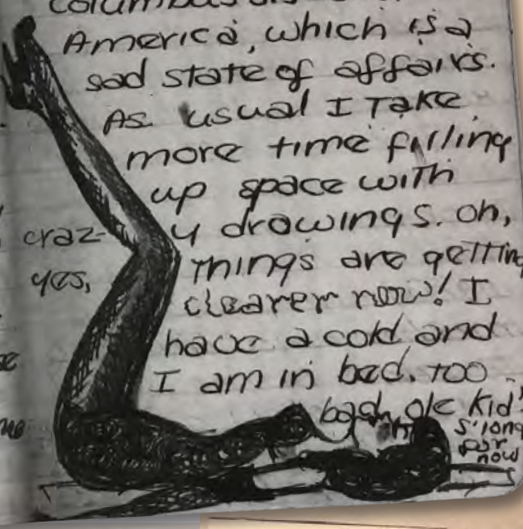 America, which is a
sad state of affairs.
As usual I Take
more time filling
up space with
craz-
y drawings. oh,
yes,
things are getting
clearer now! I
have a cold and
I am in bed. too
bad, ole kid!
s'long
for
now